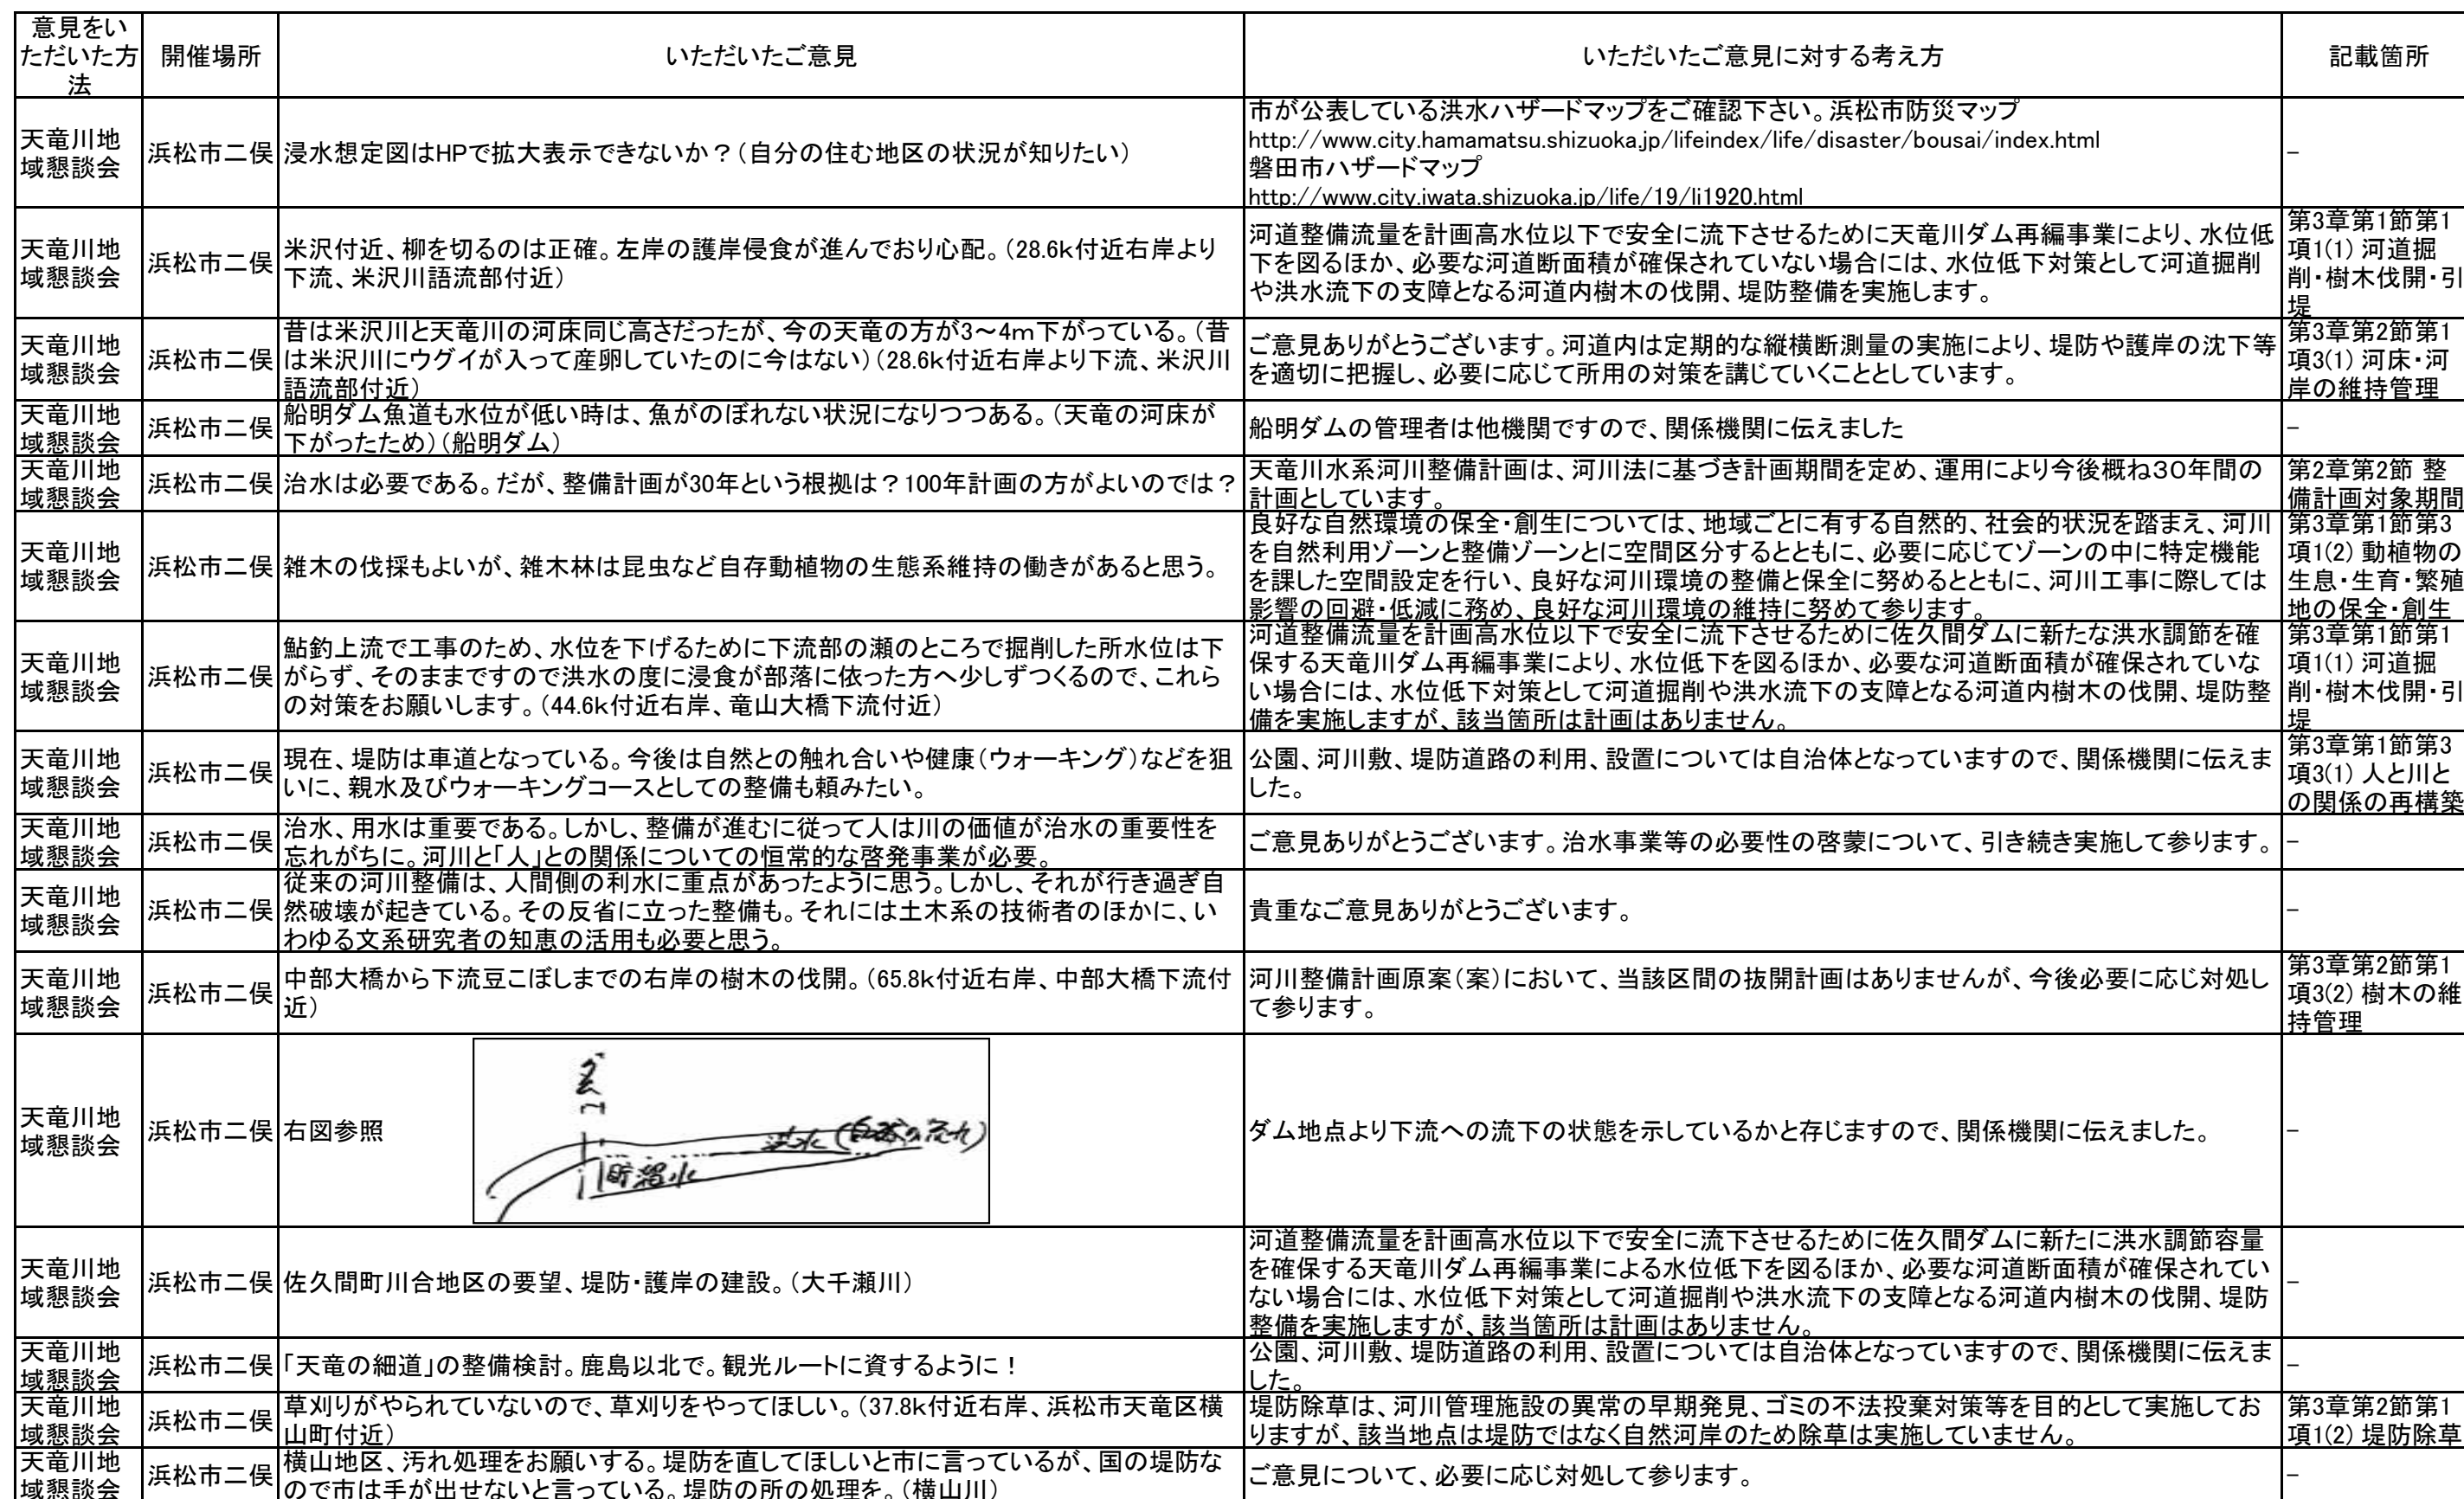 意見をい
ただいた方
法
開催場所
いただいたご意見
いただいたご意見に対する考え方
記載箇所
天竜川地
域懇談会
浜松市二俣
浸水想定図はHPで拡大表示できないか？（自分の住む地区の状況が知りたい）
市が公表している洪水ハザードマップをご確認下さい。浜松市防災マップ
http://www.city.hamamatsu.shizuoka.jp/lifeindex/life/disaster/bousai/index.html
磐田市ハザードマップ
http://www.city.iwata.shizuoka.jp/life/19/li1920.html
－
天竜川地
域懇談会
浜松市二俣
米沢付近、柳を切るのは正確。左岸の護岸侵食が進んでおり心配。（28.6k付近右岸より
下流、米沢川語流部付近）
河道整備流量を計画高水位以下で安全に流下させるために天竜川ダム再編事業により、水位低
下を図るほか、必要な河道断面積が確保されていない場合には、水位低下対策として河道掘削
や洪水流下の支障となる河道内樹木の伐開、堤防整備を実施します。
第3章第1節第1
項1(1) 河道掘
削・樹木伐開・引
堤
天竜川地
域懇談会
浜松市二俣
昔は米沢川と天竜川の河床同じ高さだったが、今の天竜の方が3～4ｍ下がっている。（昔
は米沢川にウグイが入って産卵していたのに今はない）（28.6k付近右岸より下流、米沢川
語流部付近）
ご意見ありがとうございます。河道内は定期的な縦横断測量の実施により、堤防や護岸の沈下等
を適切に把握し、必要に応じて所用の対策を講じていくこととしています。
第3章第2節第1
項3(1) 河床・河
岸の維持管理
天竜川地
域懇談会
浜松市二俣
船明ダム魚道も水位が低い時は、魚がのぼれない状況になりつつある。（天竜の河床が
下がったため）（船明ダム）
船明ダムの管理者は他機関ですので、関係機関に伝えました
－
天竜川地
域懇談会
浜松市二俣
治水は必要である。だが、整備計画が30年という根拠は？100年計画の方がよいのでは？
天竜川水系河川整備計画は、河川法に基づき計画期間を定め、運用により今後概ね３０年間の
計画としています。
第2章第2節 整
備計画対象期間
天竜川地
域懇談会
浜松市二俣
雑木の伐採もよいが、雑木林は昆虫など自存動植物の生態系維持の働きがあると思う。
良好な自然環境の保全・創生については、地域ごとに有する自然的、社会的状況を踏まえ、河川
を自然利用ゾーンと整備ゾーンとに空間区分するとともに、必要に応じてゾーンの中に特定機能
を課した空間設定を行い、良好な河川環境の整備と保全に努めるとともに、河川工事に際しては
影響の回避・低減に務め、良好な河川環境の維持に努めて参ります。
第3章第1節第3
項1(2) 動植物の
生息・生育・繁殖
地の保全・創生
天竜川地
域懇談会
浜松市二俣
鮎釣上流で工事のため、水位を下げるために下流部の瀬のところで掘削した所水位は下
がらず、そのままですので洪水の度に浸食が部落に依った方へ少しずつくるので、これら
の対策をお願いします。（44.6k付近右岸、竜山大橋下流付近）
河道整備流量を計画高水位以下で安全に流下させるために佐久間ダムに新たな洪水調節を確
保する天竜川ダム再編事業により、水位低下を図るほか、必要な河道断面積が確保されていな
い場合には、水位低下対策として河道掘削や洪水流下の支障となる河道内樹木の伐開、堤防整
備を実施しますが、該当箇所は計画はありません。
第3章第1節第1
項1(1) 河道掘
削・樹木伐開・引
堤
天竜川地
域懇談会
浜松市二俣
現在、堤防は車道となっている。今後は自然との触れ合いや健康（ウォーキング）などを狙
いに、親水及びウォーキングコースとしての整備も頼みたい。
公園、河川敷、堤防道路の利用、設置については自治体となっていますので、関係機関に伝えま
した。
第3章第1節第3
項3(1) 人と川と
の関係の再構築
天竜川地
域懇談会
浜松市二俣
治水、用水は重要である。しかし、整備が進むに従って人は川の価値が治水の重要性を
忘れがちに。河川と「人」との関係についての恒常的な啓発事業が必要。
ご意見ありがとうございます。治水事業等の必要性の啓蒙について、引き続き実施して参ります。
－
天竜川地
域懇談会
浜松市二俣
従来の河川整備は、人間側の利水に重点があったように思う。しかし、それが行き過ぎ自
然破壊が起きている。その反省に立った整備も。それには土木系の技術者のほかに、い
わゆる文系研究者の知恵の活用も必要と思う。
貴重なご意見ありがとうございます。
－
天竜川地
域懇談会
浜松市二俣
中部大橋から下流豆こぼしまでの右岸の樹木の伐開。（65.8k付近右岸、中部大橋下流付
近）
河川整備計画原案（案）において、当該区間の抜開計画はありませんが、今後必要に応じ対処し
て参ります。
第3章第2節第1
項3(2) 樹木の維
持管理
天竜川地
域懇談会
浜松市二俣
右図参照
ダム
洪水
貯溜水
ダム地点より下流への流下の状態を示しているかと存じますので、関係機関に伝えました。
－
天竜川地
域懇談会
浜松市二俣
佐久間町川合地区の要望、堤防・護岸の建設。（大千瀬川）
河道整備流量を計画高水位以下で安全に流下させるために佐久間ダムに新たに洪水調節容量
を確保する天竜川ダム再編事業による水位低下を図るほか、必要な河道断面積が確保されてい
ない場合には、水位低下対策として河道掘削や洪水流下の支障となる河道内樹木の伐開、堤防
整備を実施しますが、該当箇所は計画はありません。
－
天竜川地
域懇談会
浜松市二俣
「天竜の細道」の整備検討。鹿島以北で。観光ルートに資するように！
公園、河川敷、堤防道路の利用、設置については自治体となっていますので、関係機関に伝えま
した。
－
天竜川地
域懇談会
浜松市二俣
草刈りがやられていないので、草刈りをやってほしい。（37.8k付近右岸、浜松市天竜区横
山町付近）
堤防除草は、河川管理施設の異常の早期発見、ゴミの不法投棄対策等を目的として実施してお
りますが、該当地点は堤防ではなく自然河岸のため除草は実施していません。
第3章第2節第1
項1(2) 堤防除草
天竜川地
域懇談会
浜松市二俣
横山地区、汚れ処理をお願いする。堤防を直してほしいと市に言っているが、国の堤防な
ので市は手が出せないと言っている。堤防の所の処理を。（横山川）
ご意見について、必要に応じ対処して参ります。
－